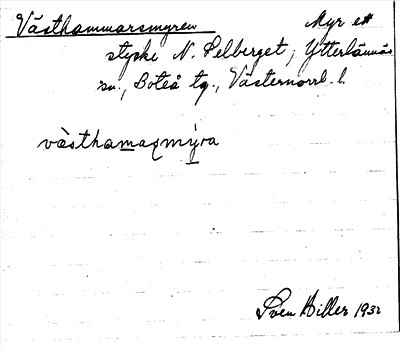 Västhammarsmyren Myr ett
stycke N. Pelberget, Ytterlännäs
sn., Boteå tg., Västernorrl. l.
vàsthamaꞯmýra
Sven Hiller 1932